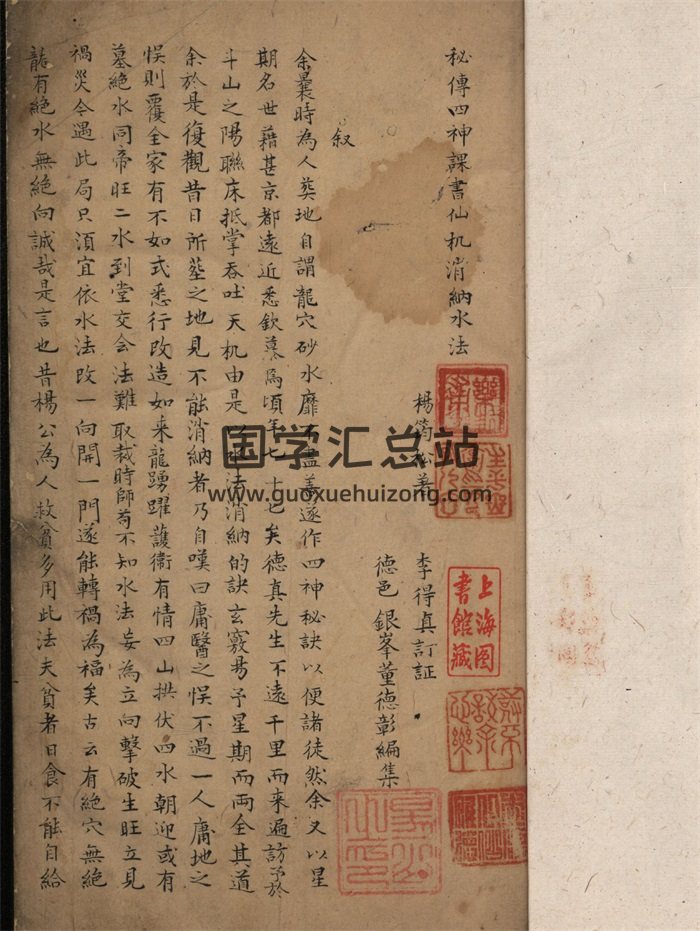 秘傳四神課書仙机消納水法
楊筠松著
李得真訂証
德邑銀峯董德彰編集
叙
余曩時為人葬地自謂龍穴砂水靡不盡善遂作四神秘訣以便諸徒然余又以星
期名世藉甚京都遠近悉欽慕焉頃年七十也矣德真先生不遠千里而来遍訪予於
斗山之陽聯床抵掌吞吐天机由是以水法消納的訣玄竅易予星期而両全其道
余於是復觀昔日所塟之地見不能消納者乃自嘆曰庸醫之悞不過一人庸地之
悞則覆全家有不如式悉行改造如来龍踴躍護衛有情四山拱伏四水朝迎或有
墓絶水同帝旺二水到堂交会法難取裁時師苟不知水法妄為立向擊破生旺立見
禍災今遇此局只湏宜依水法改一向開一門遂能轉禍為福矣古云有絶穴無絶
龍有絶水無絶向誠哉是言也昔楊公為人救貧多用此法夫貧者日食不能自給
上海图
書館藏
国学汇总站
www.guoxuehuizong.com